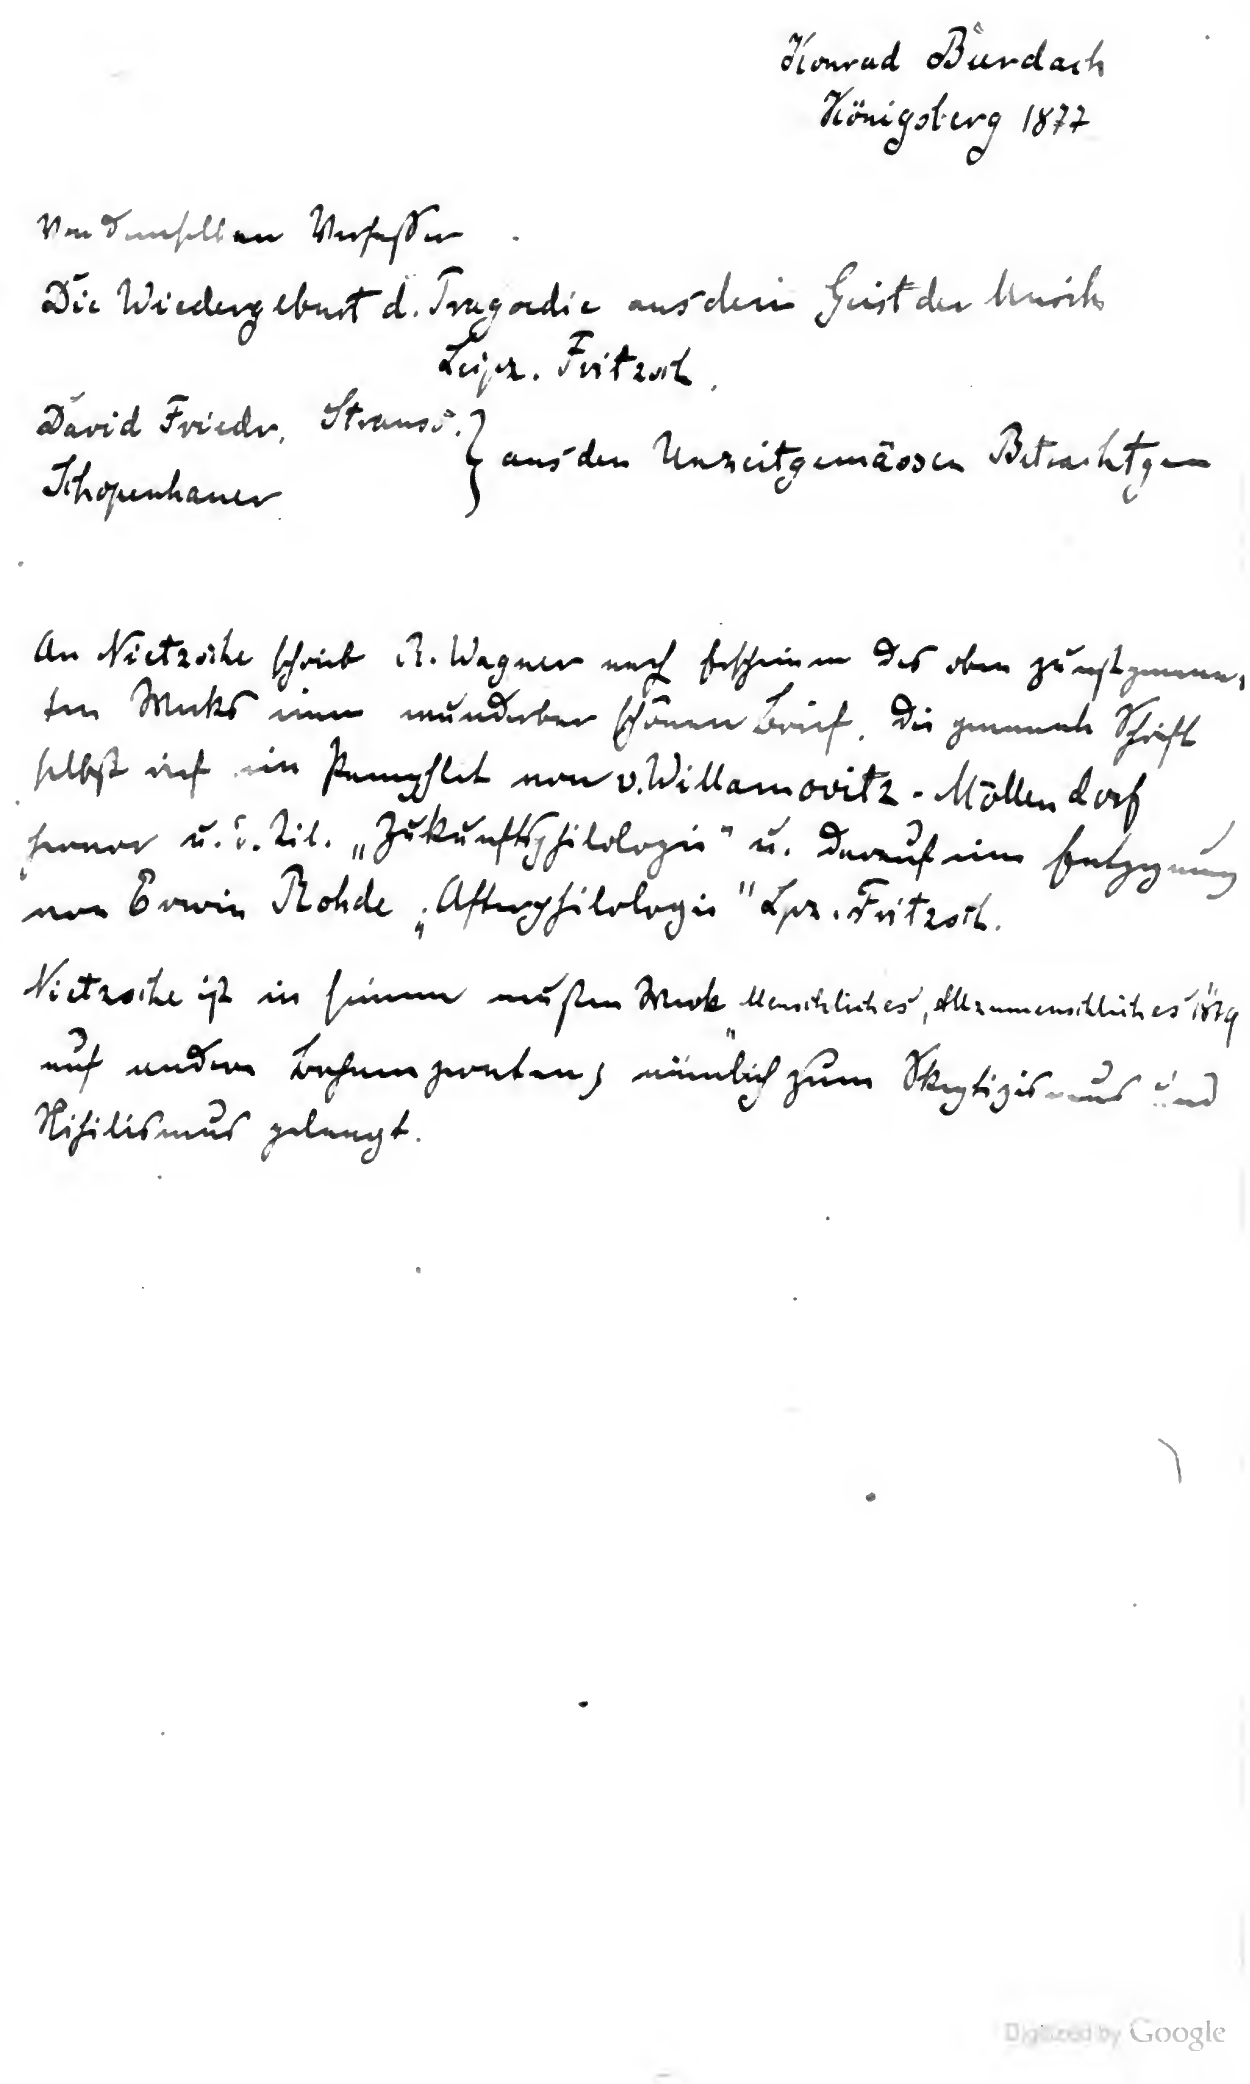 Konrad Burdach
Königsberg 1877
Von demselben Verfasser
Die Wiedergeburt d. Tragoedie aus dem Geist der Musik
Leipz. Fritzsch.
David Friedr. Strauss.
Schopenhauer
} aus den Unzeitgemässen Betrachtgen
An Nietzsche schrieb R. Wagner nach Erscheinen des oben zuerst genann-
ten Werks einen wunderbar schönen Brief. Die genannte Schrift
selbst rief ein Pamphlet von v. Willamovitz-Möllendorf
hervor u. d. Tit. „Zukunftsphilologie" u. darauf eine Entgegnung
von Erwin Rohde „Afterphilologie" Lpz. Fritzsch.
Nietzsche ist in seinem neusten Werk „Menschliches, Allzumenschliches" 1879
auf andere Bahnen geraten, nämlich zum Skeptizismus und
Nihilismus gelangt.
Digitized by Google